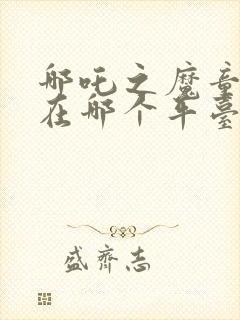 哪吒之魔童
在哪个平臺
盛齊志